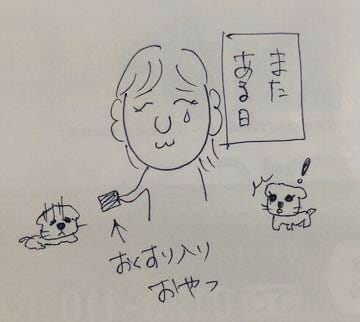 また
ある日
!
おくすり入り
おやつ